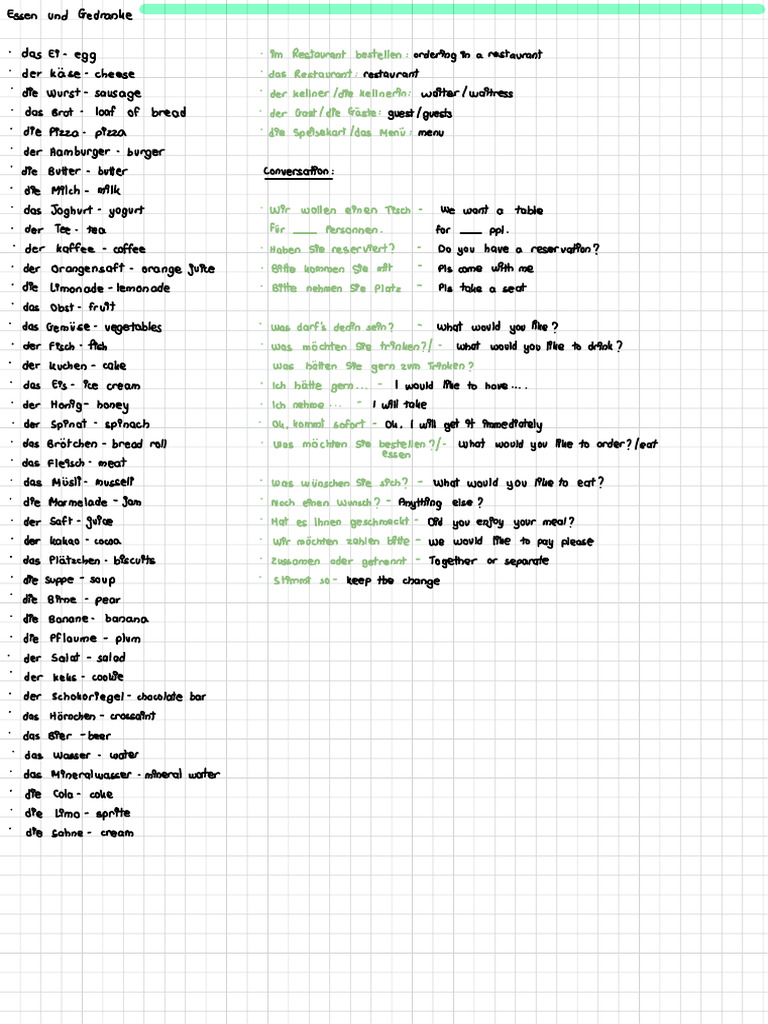 Essen und Gedranke
· das Ei - egg
· der käse - cheese
· die Wurst - sausage
· das Brot - loaf of bread
· die Pizza - pizza
· der Hamburger - burger
· die Butter - butter
· die Milch - milk
· das Joghurt - yogurt
· der Tee - tea
· der kaffee - coffee
· der Orangensaft - orange juice
· die Limonade - lemonade
· das Obst - fruit
· das Gemüse - vegetables
· der Fisch - fish
· der kuchen - cake
· das Eis - ice cream
· der Honig - honey
· der Spinat - spinach
· das Brötchen - bread roll
· das Fleisch - meat
· das Müsli - musseli
· die Marmelade - jam
· der Saft - juice
· der kakao - cocoa
· das Plätzchen - biscuits
· die suppe - soup
· die Birne - pear
· die Banane - banana
· die Pflaume - plum
· der Salat - salad
· der keks - cookie
· der Schokoriegel - chocolate bar
· das Hörnchen - crossaint
· das Bier - beer
· das Wasser - water
· das Mineralwasser - mineral water
· die Cola - coke
· die Limo - sprite
· die Sahne - cream
· im Restaurant bestellen : ordering in a restaurant
· das Restaurant : restaurant
· der kellner / die kellnerin : waiter / waitress
· der Gast / die Gäste : guest / guests
· die Speisekart / das Menü : menu
Conversation :
· Wir wollen einen Tisch - We want a table
für ___ Personnen. for ___ ppl.
· Haben Sie reserviert? - Do you have a reservation?
· Bitte kommen Sie mit - Pls come with me
· Bitte nehmen Sie Platz - Pls take a seat
· Was darf's denin sein? - What would you like?
· Was möchten Sie trinken? / - What would you like to drink?
Was hätten Sie gern zum Trinken?
· Ich hätte gern ... - I would like to have ....
· Ich nehme ... - I will take
· Ok, kommt sofort - Ok, I will get it immediately
· Was möchten Sie bestellen? / - What would you like to order? / eat
essen
· Was wünschen Sie sich? - What would you like to eat?
· Noch einen Wunsch? - Anything else?
· Hat es Ihnen geschmeckt - Did you enjoy your meal?
· Wir möchten zahlen bitte - We would like to pay please
· Zusamen oder getrennt - Together or separate
· Stimmt so - keep the change